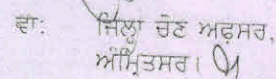 ਵਾ: ਜਿਲ੍ਹਾ ਚੋਣ ਅਫ਼ਸਰ,
ਅੰਮ੍ਰਿਤਸਰ।